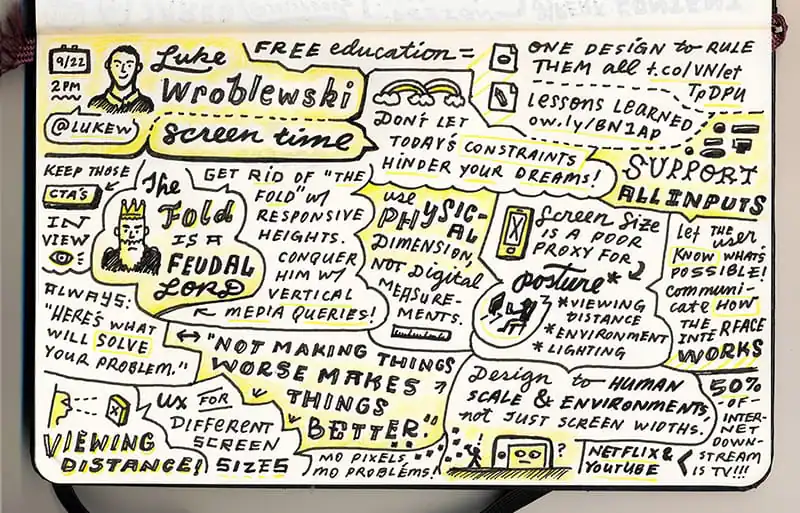 9/22
2PM
@LUKEW
Luke
Wroblewski
screen time
FREE education =
ONE DESIGN to RULE
THEM all t.co/VN1et
TpDPU
lessons LEARNED
ow.ly/BN1AP
DON'T LET
TODAY'S CONSTRAINTS
HINDER YOUR DREAMS!
SUPPORT
ALL INPUTS
KEEP THOSE
CTA'S
IN
VIEW
The
Fold
IS A
FEUDAL
LORD
GET RID OF "THE
FOLD" W/
RESPONSIVE
HEIGHTS.
CONQUER
HIM W/
VERTICAL
MEDIA QUERIES!
use
PHYSIC-
AL
DIMENSION,
NOT DIGITAL
MEASURE-
MENTS.
Screen Size
IS A POOR
PROXY FOR
posture*
*VIEWING
DISTANCE
*ENVIRONMENT
*LIGHTING
let THE
user
KNOW WHAT'S
POSSIBLE!
communi-
cate HOW
THE
INTERFACE
WORKS
ALWAYS:
"HERE'S WHAT
WILL SOLVE
YOUR PROBLEM."
"NOT MAKING THINGS
WORSE MAKES
THINGS
BETTER."
Design to HUMAN
SCALE & ENVIRONMENTS,
not JUST SCREEN WIDTHS.
VIEWING
DISTANCE!
UX FOR
DIFFERENT
SCREEN
SIZES
MO PIXELS,
MO PROBLEMS!
?
NETFLIX &
YOUTUBE
50%
OF
INTER-
NET
DOWN-
STREAM
IS TV!!!